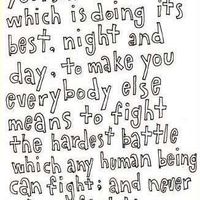 which is doing its
best, night and
day, to make you
everybody else
means to fight
the hardest battle
which any human being
can fight; and never